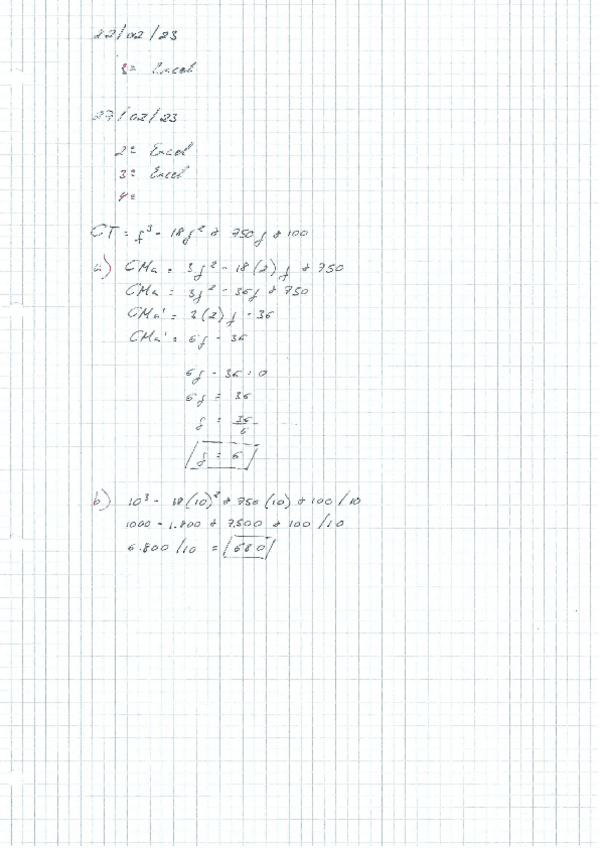 22/02/23
1= Excel
27/02/23
2= Excel
3= Excel
4=
CT = q³ - 18q² + 750q + 100
a) CMa = 3q² - 18(2)q + 750
CMa = 3q² - 36q + 750
CMa' = 3(2)q - 36
CMa' = 6q - 36
6q - 36 = 0
6q = 36
q = 36/6
q = 6
b) 10³ - 18(10)² + 750(10) + 100 / 10
1000 - 1.800 + 7.500 + 100 / 10
6.800 / 10 = 680